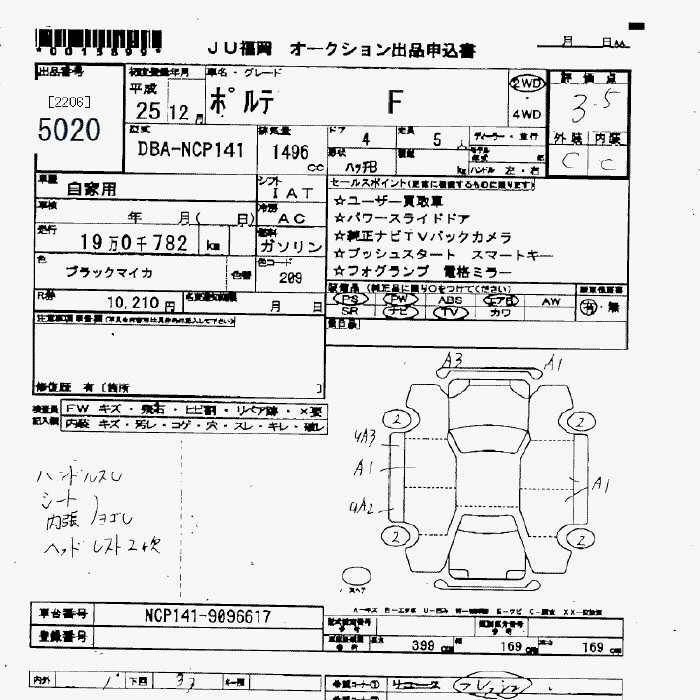 *0015899*
JU福岡 オークション出品申込書
月 日
出品番号
[2206]
5020
初度登録年月
平成
25 12 月
車名・グレード
ポルテ F
2WD
4WD
評価点
3.5
外装 内装
C C
型式
DBA-NCP141
排気量
1496 cc
ドア 4
定員 5 人
形状
ディーラー・並行
ハンドル 左・右
kg
車歴
自家用
シフト
IAT
車検
年 月( 日)
冷房
AC
走行
19万0千782 km
燃料
ガソリン
色
ブラックマイカ
色替
色コード
209
R券
10,210 円
名義変更期限
月 日
セールスポイント
☆ユーザー買取車
☆パワースライドドア
☆純正ナビTVバックカメラ
☆プッシュスタート スマートキー
☆フォグランプ 電格ミラー
装備品 (純正品に限り○をつけてください)
PS PW ABS エアB AW
SR ナビ TV カワ
有・無
修復歴 有〔箇所 〕
検査員
記入欄
FW キズ・飛石・ヒビ割・リペア跡・×要
内装 キズ・汚レ・コゲ・穴・スレ・キレ・破レ
A3
A1
2
2
4A3
A1
4A2
A1
2
2
ハンドルスレ
シート
内張 ヨゴレ
ヘッドレスト2欠
スペア
車台番号
NCP141-9096617
登録番号
長さ 399 cm 幅 169 cm 高さ 169 cm
内外
下回
希望コーナー①
リユース